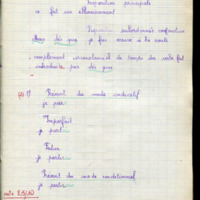 proposition principale
ce fut un éblouissement
Proposition subordonnée conjonctive
dès que je
complément circonstanciel de temps du verbe fut
introduite par dès que
Présent du mode indicatif
je pars
Imparfait
je partais
Futur
je partirai
Présent du mode conditionnel
je partirais